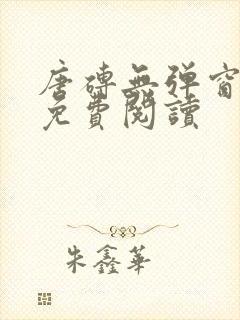 唐磚無彈窗
免費閱讀
朱鑫華